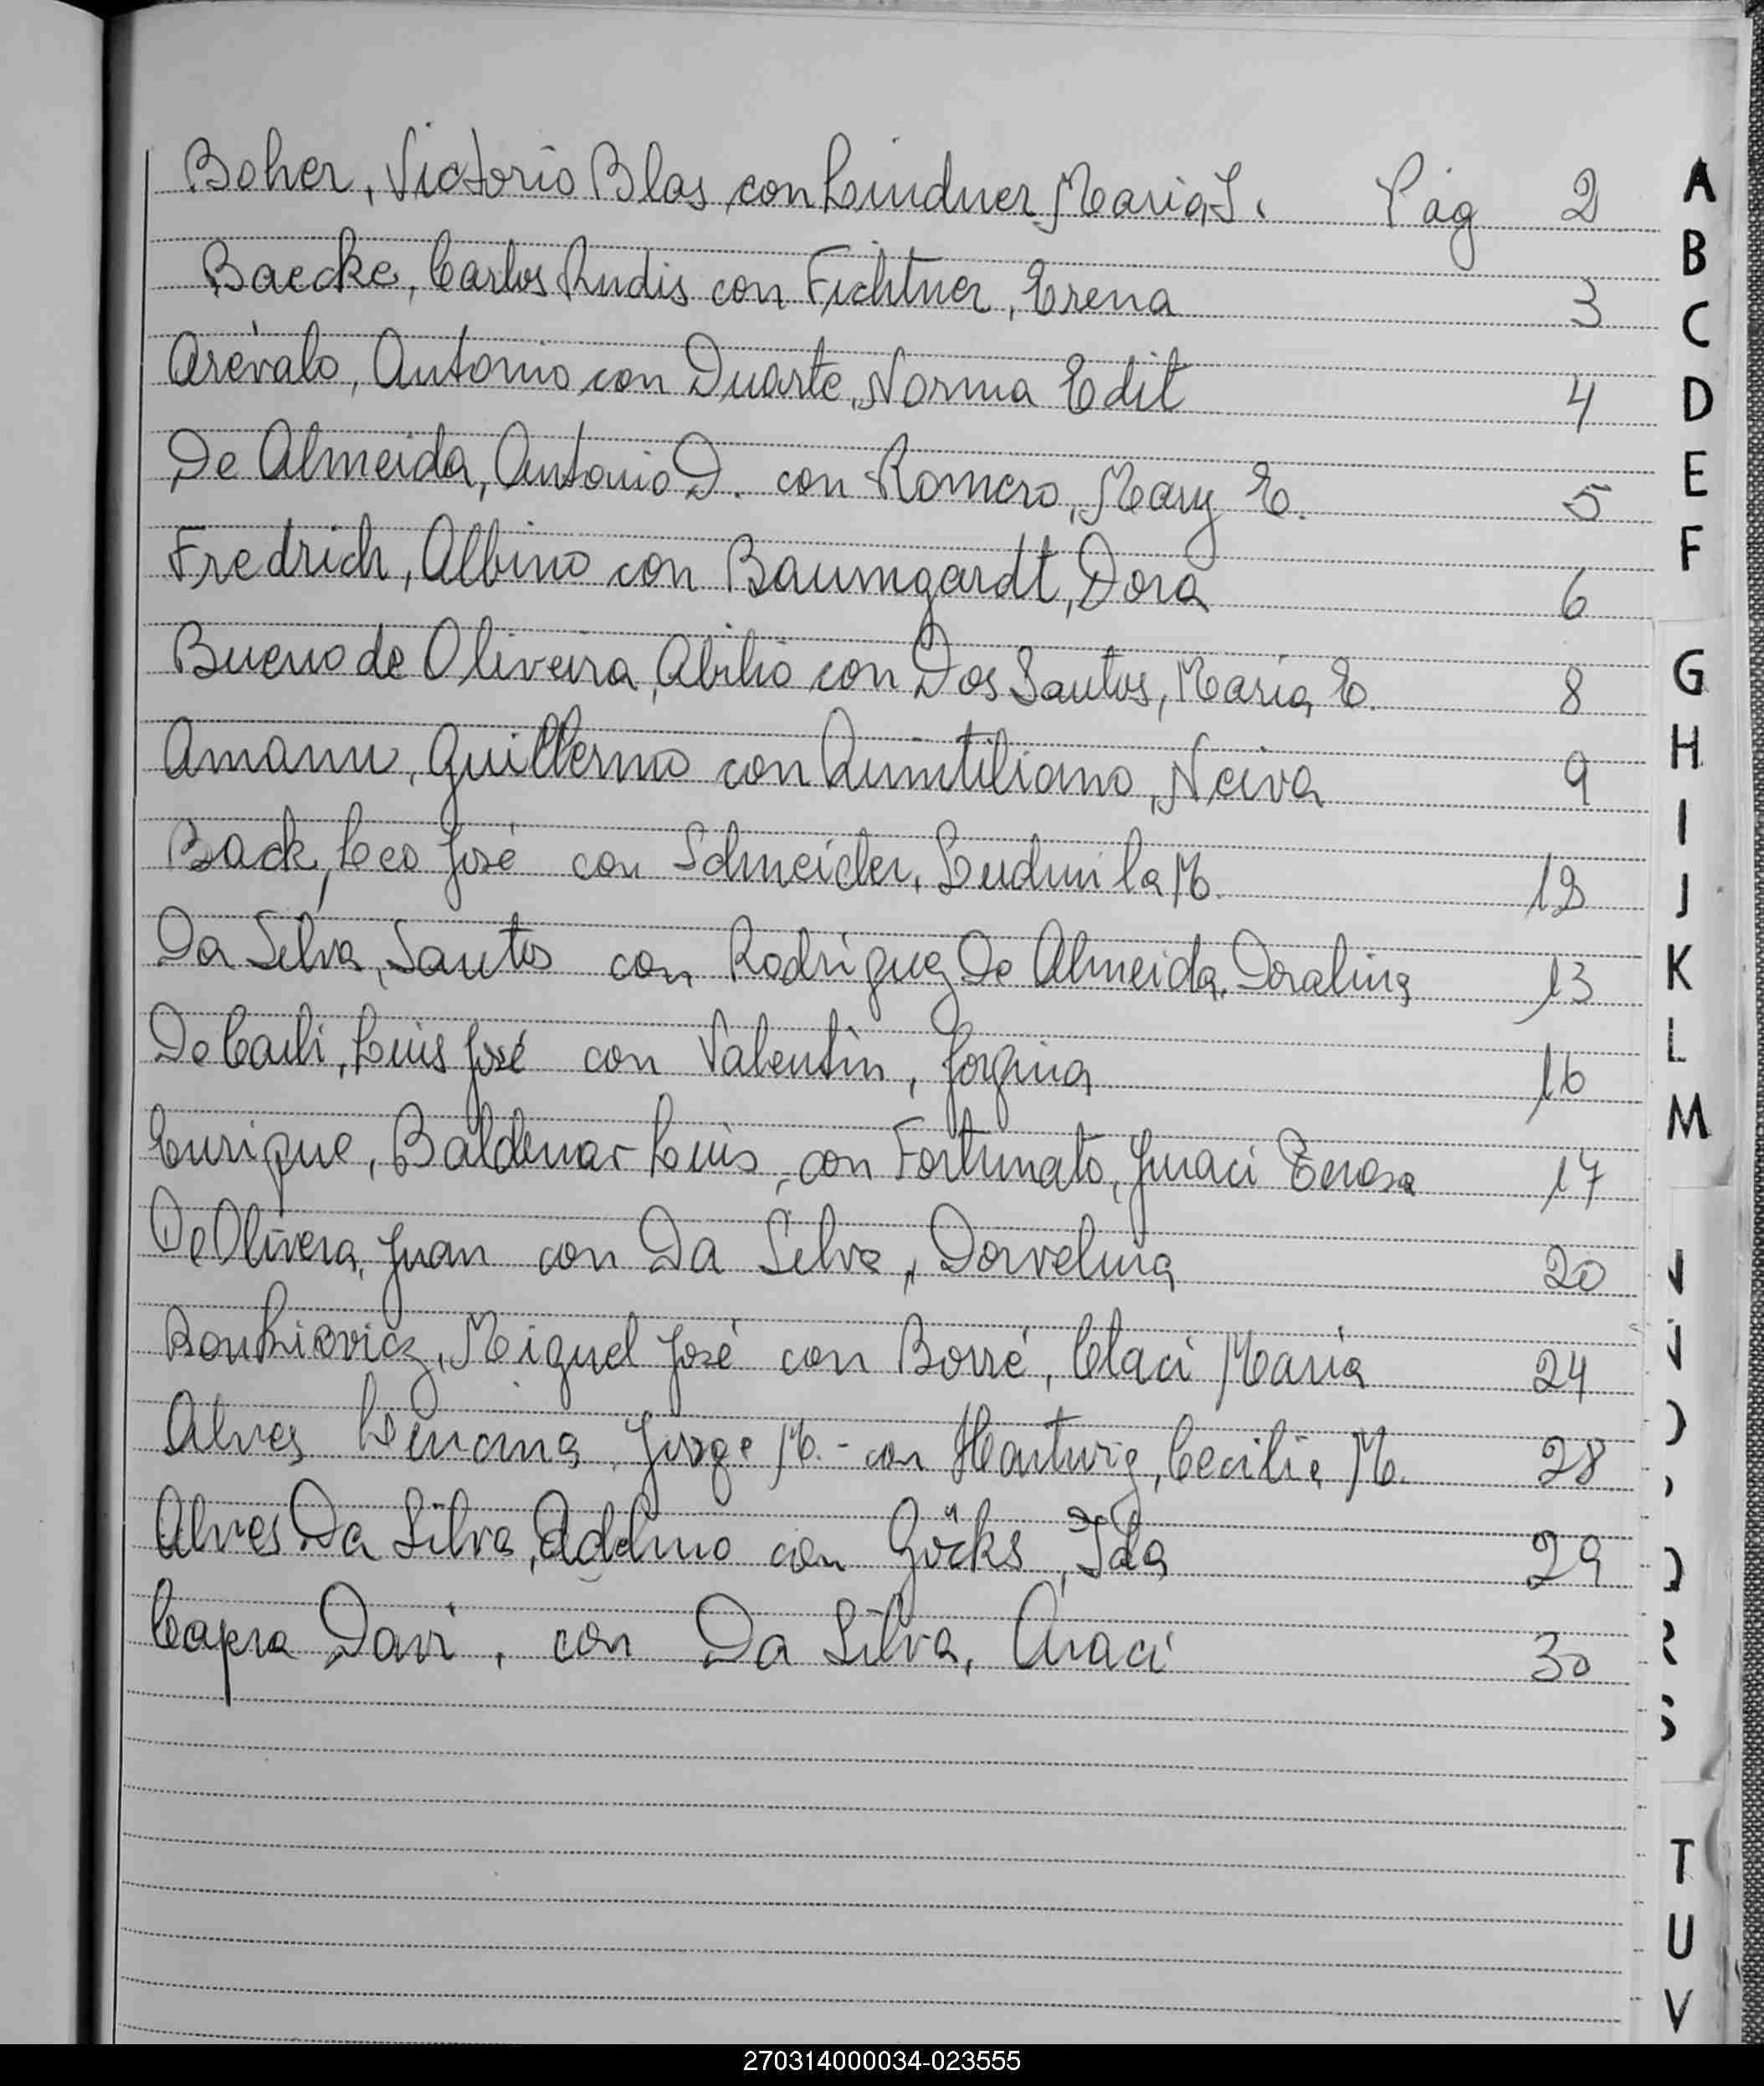 Boher, Victorio Blas con Lindner Maria S. Pág 2
Baecke, Carlos Rudis con Fichtner, Erena 3
Arévalo, Antonio con Duarte, Norma Edit 4
De Almeida, Antonio D. con Romero, Mary E. 5
Fredrich, Albino con Baumgardt, Dora 6
Bueno de Oliveira, Abilio con Dos Santos, María E. 8
Amann, Guillermo con Quintiliano, Neiva 9
Back, Leo José con Schneider, Ludmila M. 12
Da Silva, Santos con Rodríguez De Almeida, Doralina 13
De Carli, Luis José con Valentín, Jorgina 16
Enrique, Baldemar Luis, con Fortunato, Juraci Teresa 17
De Olivera, Juan con Da Silva, Dorvelina 20
Bonkievicz, Miguel José con Borré, Claci María 24
Alves Lencina, Jorge M. - con Hartwig, Cecilia M. 28
Alves Da Silva, Adelmo con Göcks, Ida 29
Capra Davi, con Da Silva, Araci 30
A
B
C
D
E
F
G
H
I
J
K
L
M
T
U
V
270314000034-023555